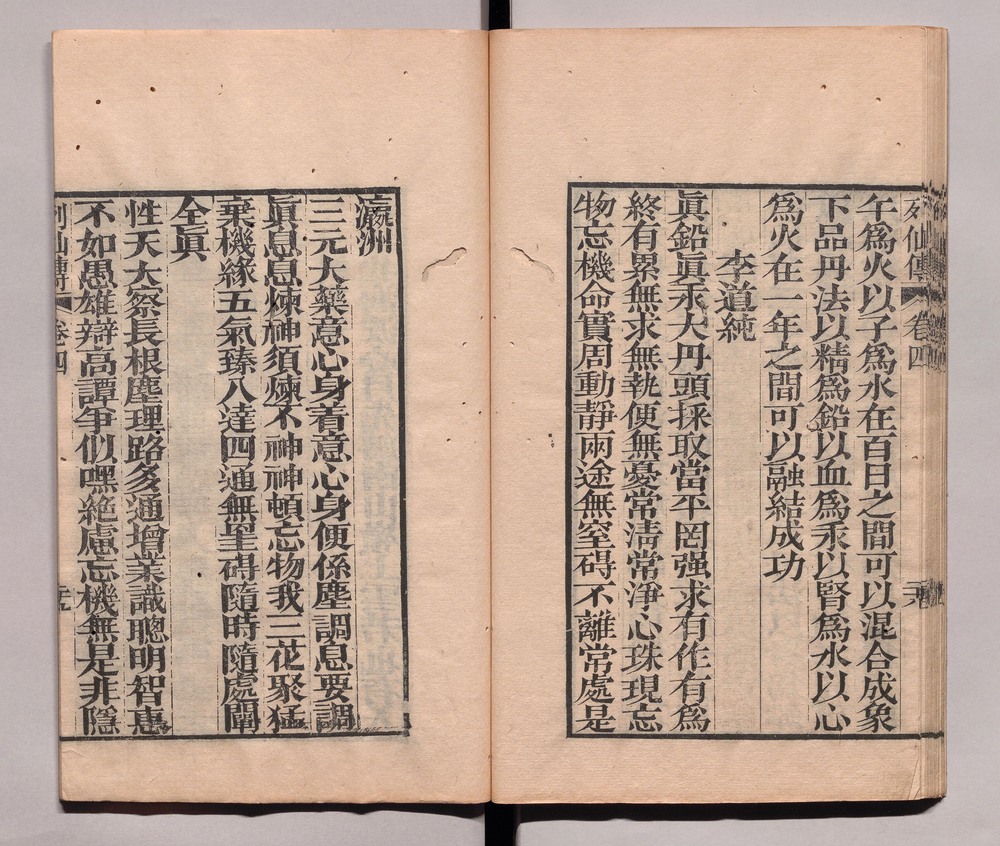 列仙傳 卷四
午爲火以子爲水在百日之間可以混合成象
下品丹法以精爲鉛以血爲汞以腎爲水以心
爲火在一年之間可以融結成功
李道純
眞鉛眞汞大丹頭採取當平罔强求有作有爲
終有累無求無執便無憂常淸常淨心珠現忘
物忘機命寶周動靜兩途無窒碍不離常處是
瀛洲
三元大藥意心身着意心身便係塵調息要調
眞息息煉神須煉不神神頓忘物我三花聚猛
棄機緣五氣臻八達四通無罣碍隨時隨處闡
全眞
性天大察長根塵理路多通增業識聰明智惠
不如愚雄辯高譚爭似嘿絶慮忘機無是非隱
列仙傳 卷四